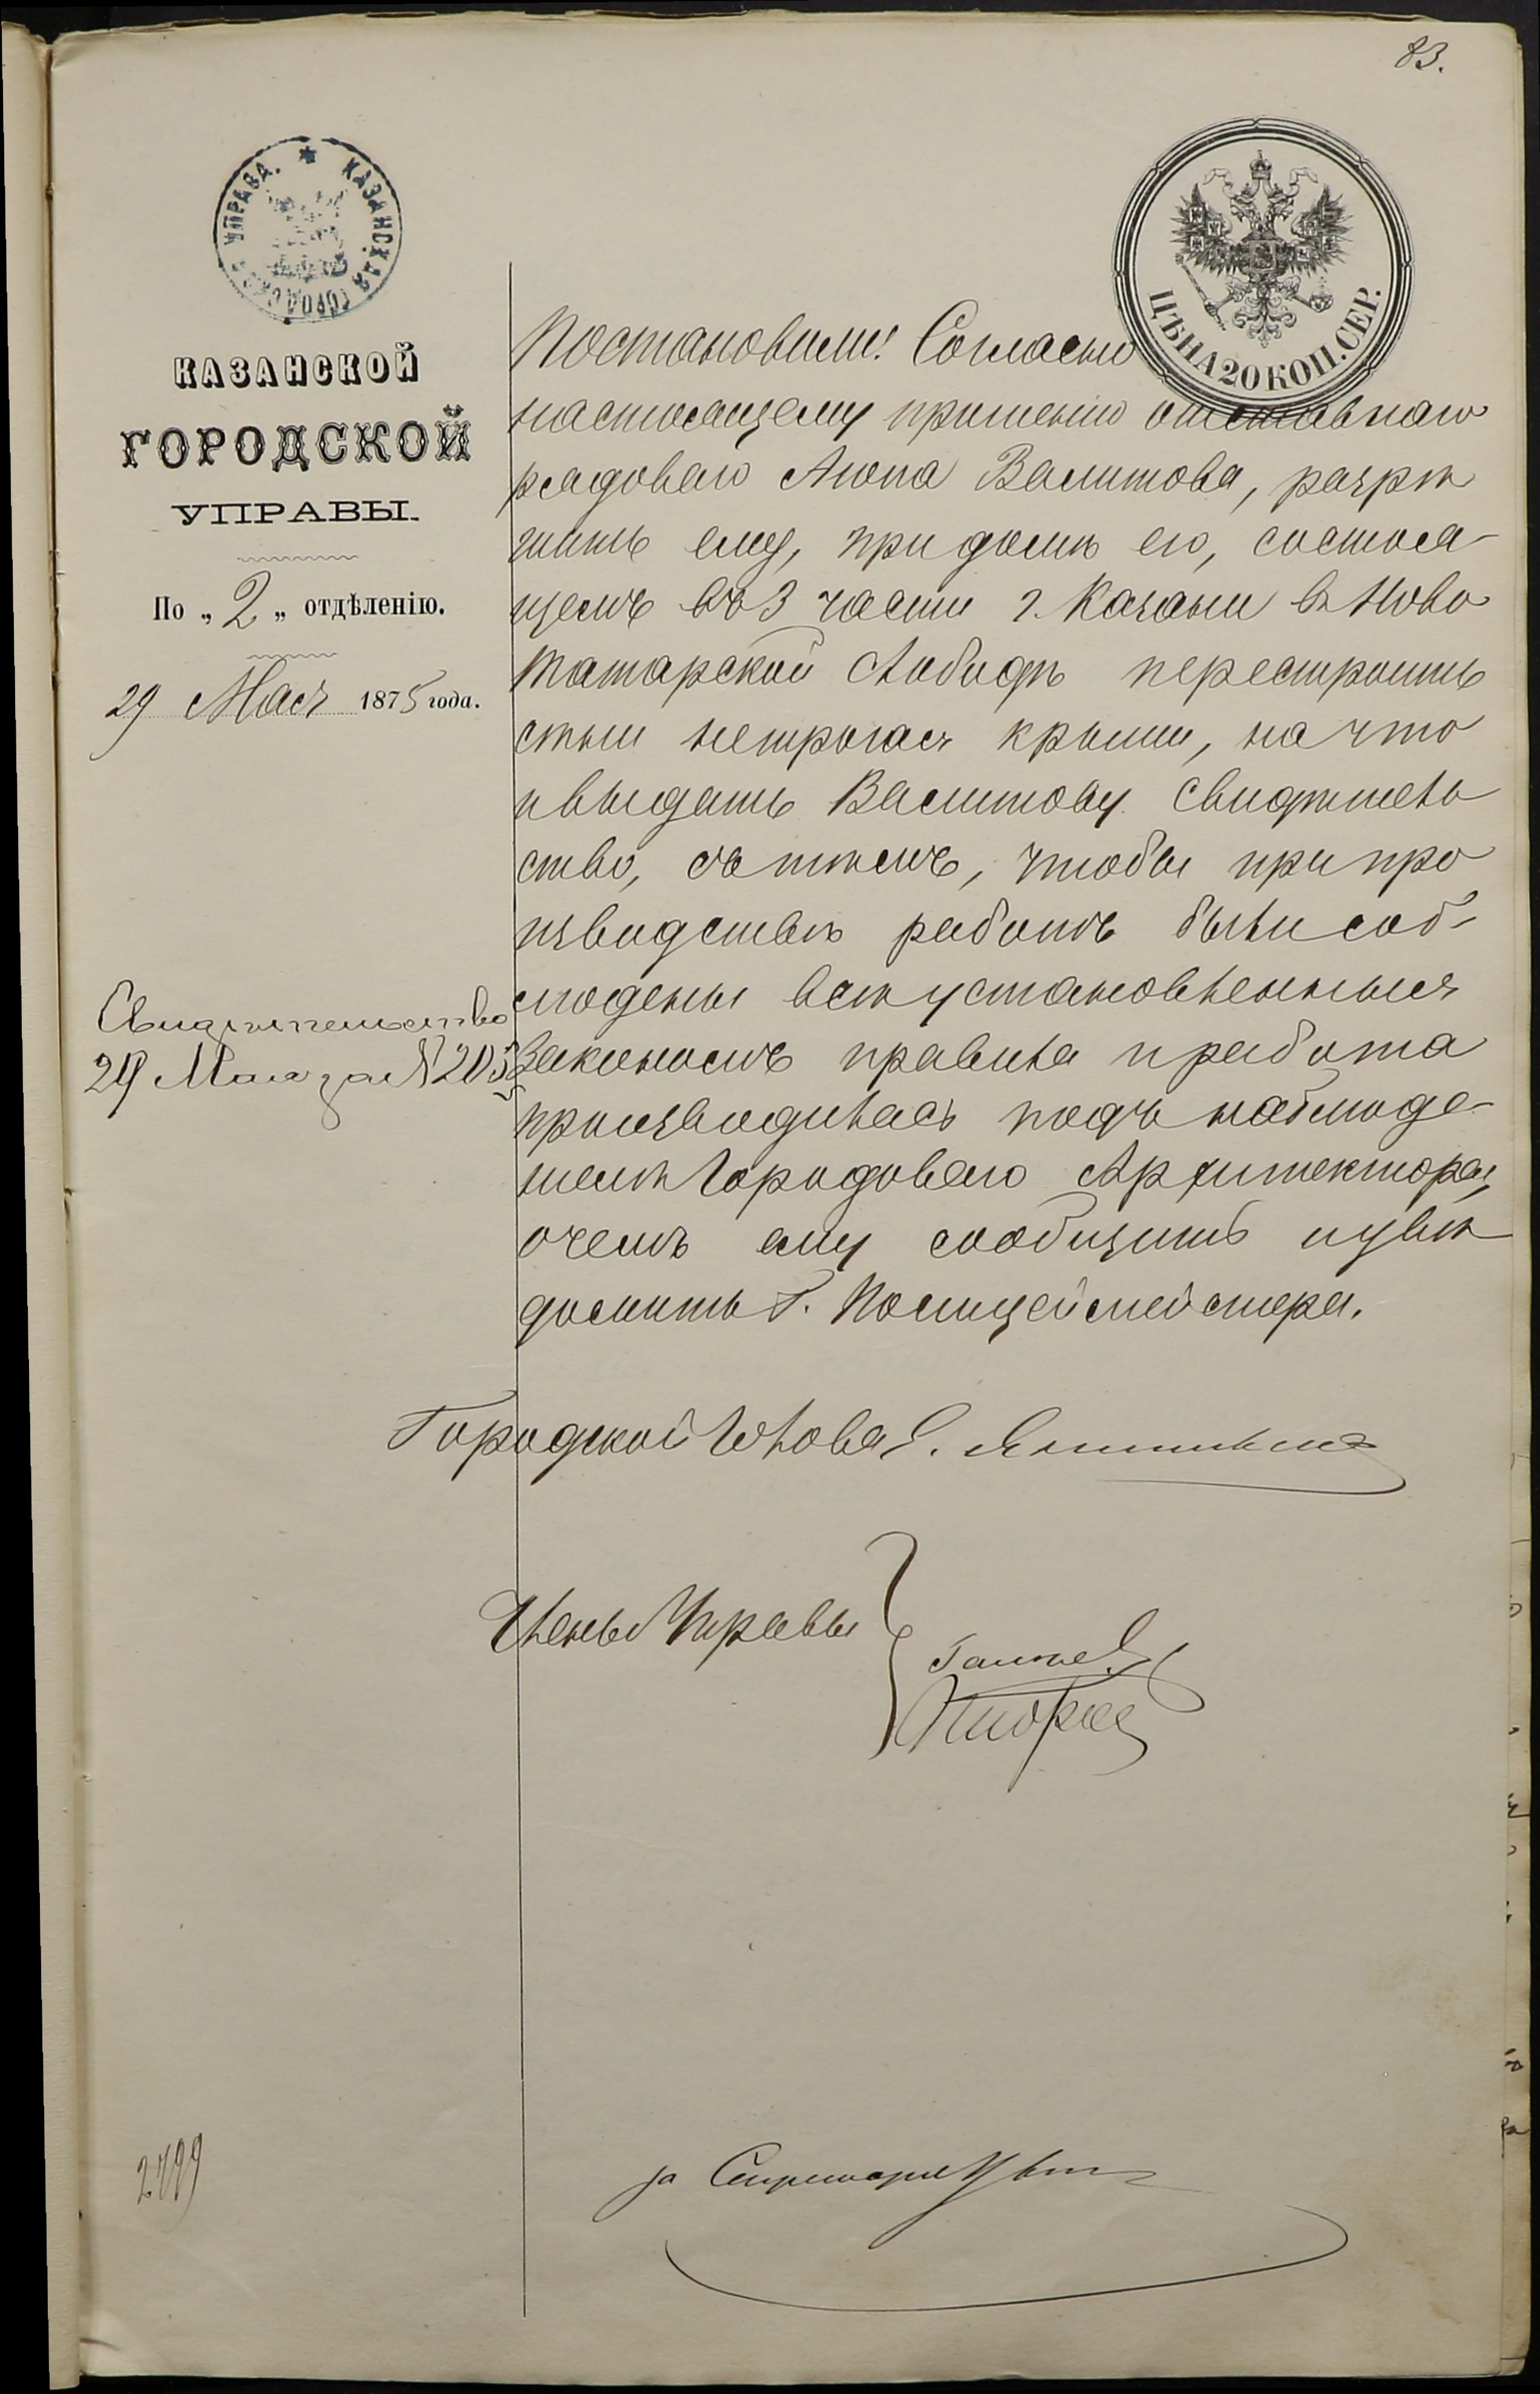 83.
КАЗАНСКАЯ ГОРОДСКАЯ УПРАВА.
ЦѢНА 20 КОП. СЕР.
КАЗАНСКОЙ
ГОРОДСКОЙ
УПРАВЫ.
По „2„ отдѣленію.
29 Мая 1875 года.
Постановили: Согласно
настоящему прошенію отставнаго
рядоваго Аюпа Валитова, разрѣ
шить ему, при домѣ его, состоя-
щемъ въ 3 части г. Казани въ Ново
Татарской слободѣ перестроить
стѣны нетрогая крыши, на что
и выдать Валитову свидѣтель
ство, съ тѣмъ, чтобы при про
изводствѣ работъ были соб-
людены всѣ установленныя
закономъ правила и работа
производилась подъ наблюде-
ніемъ Городоваго Архитектора,
о чемъ ему сообщить и увѣ
домить Г. Полицеймейстера.
Свидѣтельство
29 Мая за № 205
Городской Голова Е. Янишевскій
Члены Управы
за Секретаря
2499